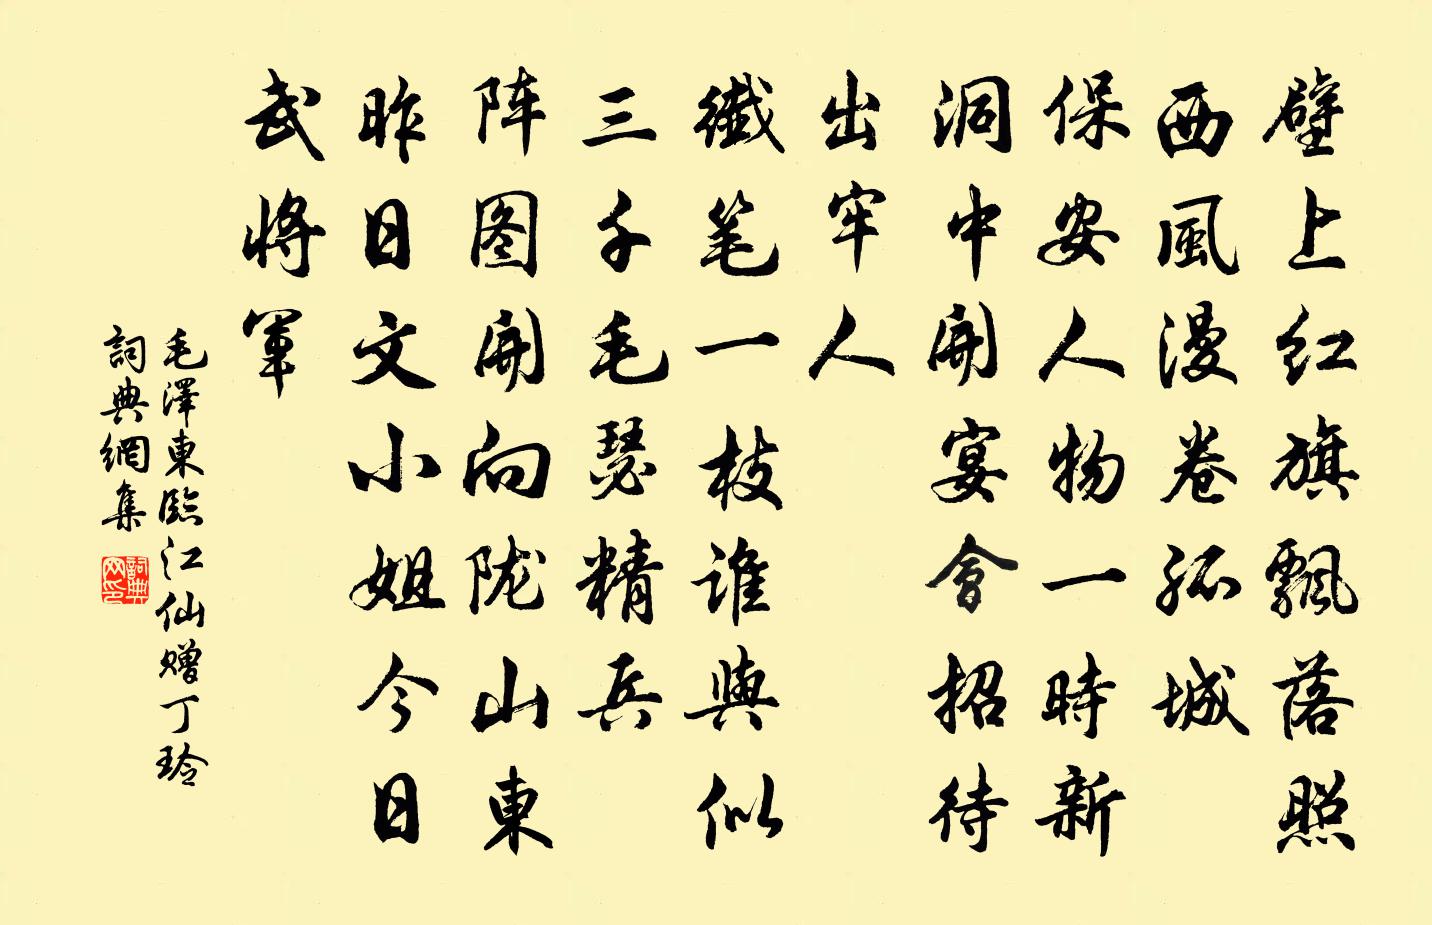 壁上红旗飄落照
西風漫卷孤城
保安人物一時新
洞中開宴會招待
出牢人
纖笔一枝谁與似
三千毛瑟精兵
阵图開向陇山東
昨日文小姐今日
武将軍
毛澤東臨江仙赠丁玲
詞典網集
詞典网印